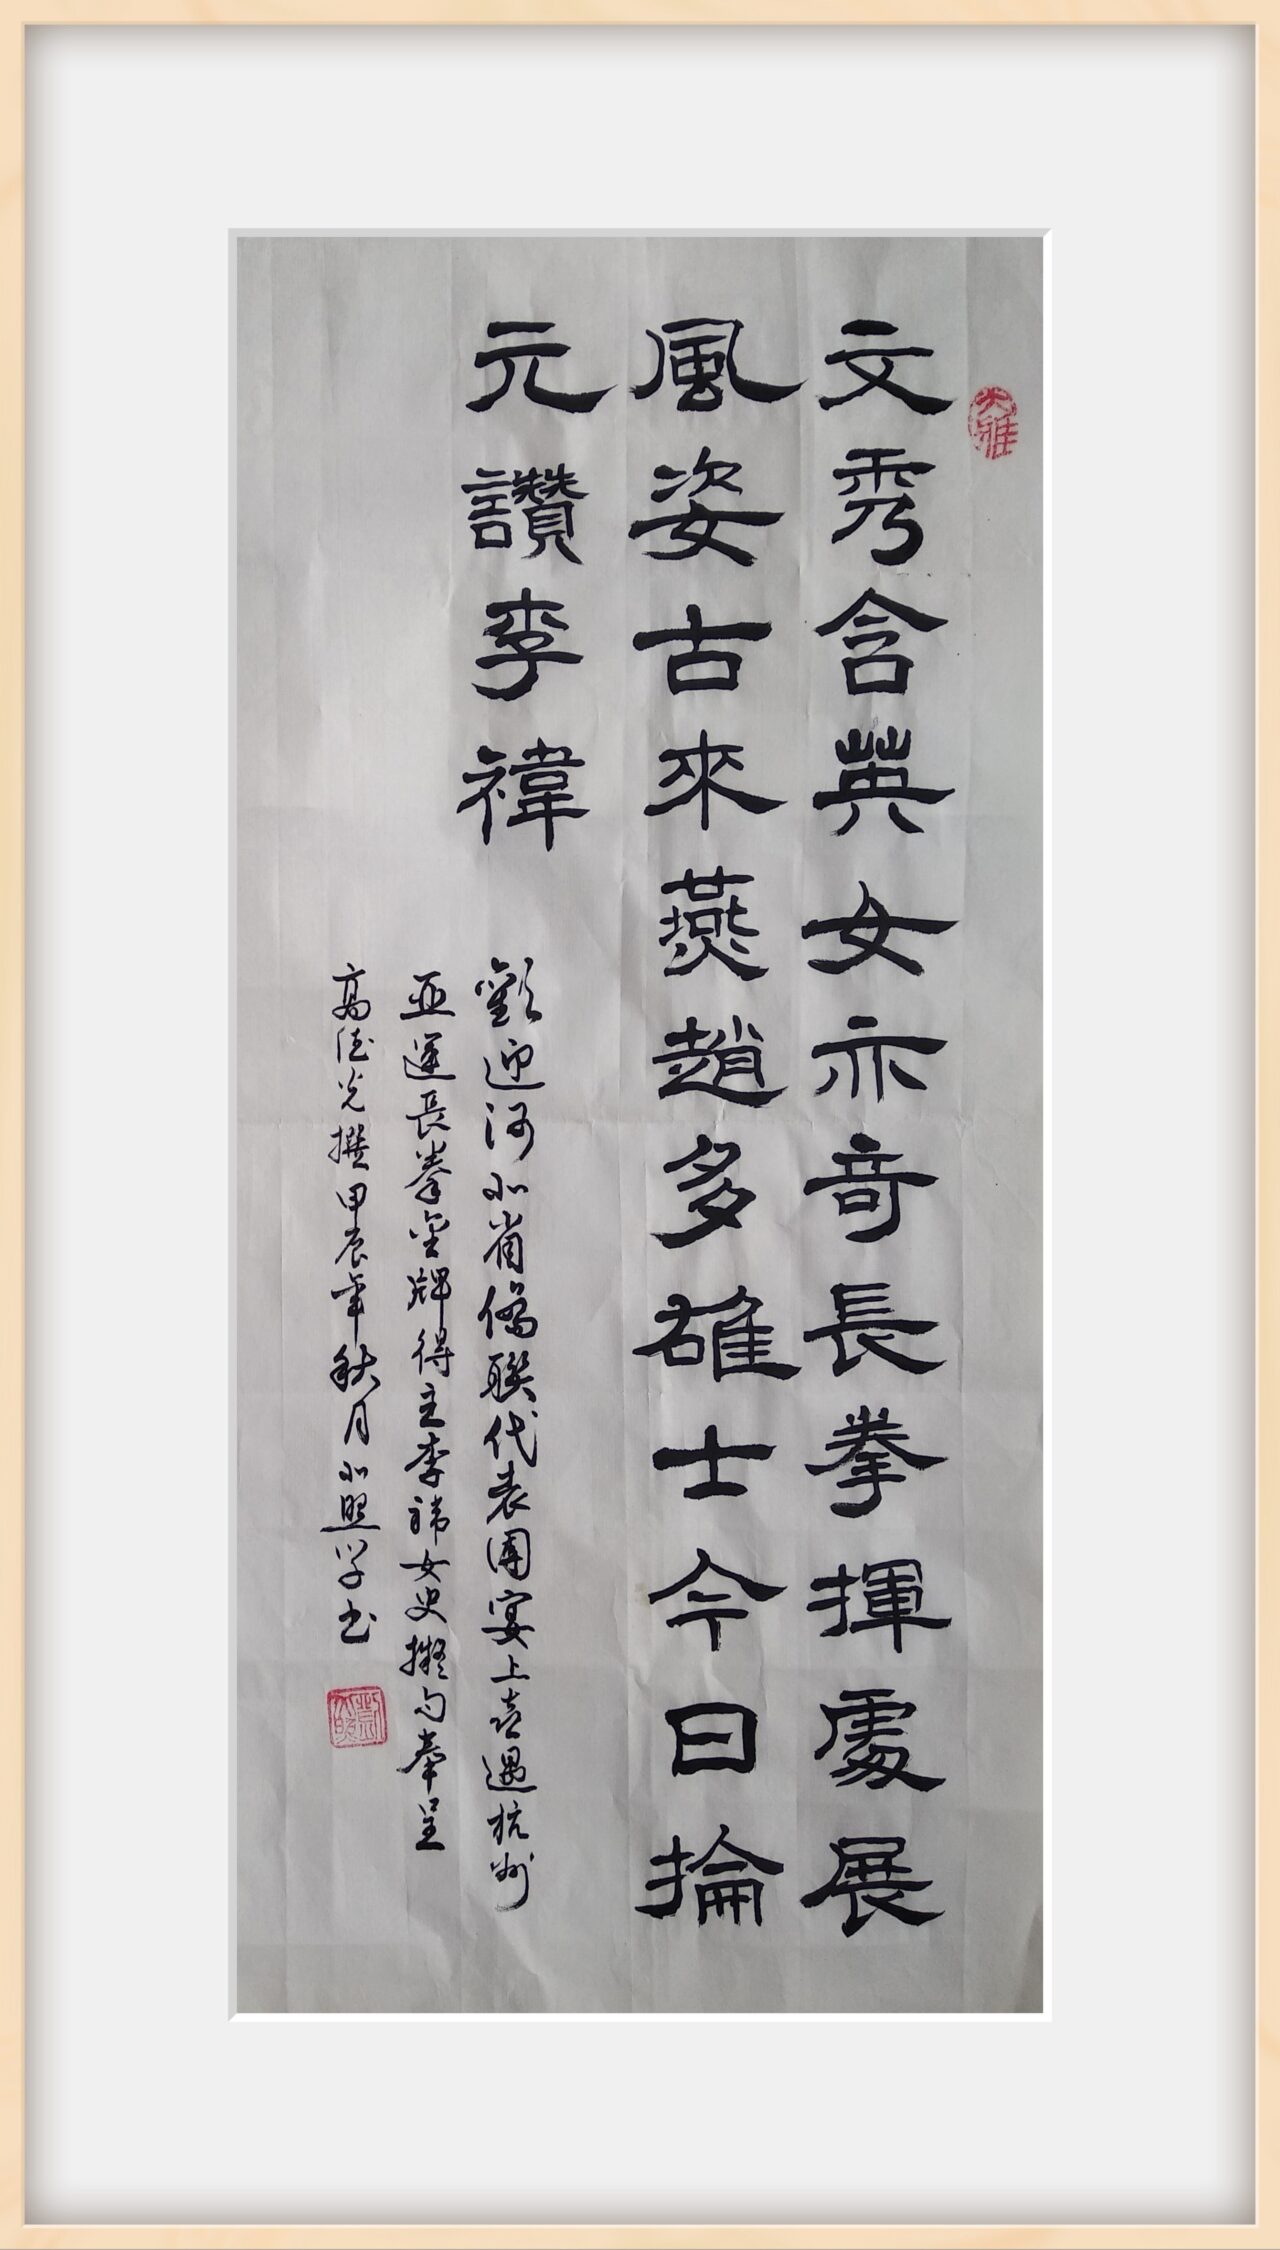 大雅
文秀含英女亦奇長拳揮處展
風姿古來燕趙多雄士今日掄
元讚李禕
歡迎河北省僑聯代表團宴上喜遇杭州
亚運長拳金牌得主李祎女史擬句奉呈
高德光撰甲辰年秋月小照学书